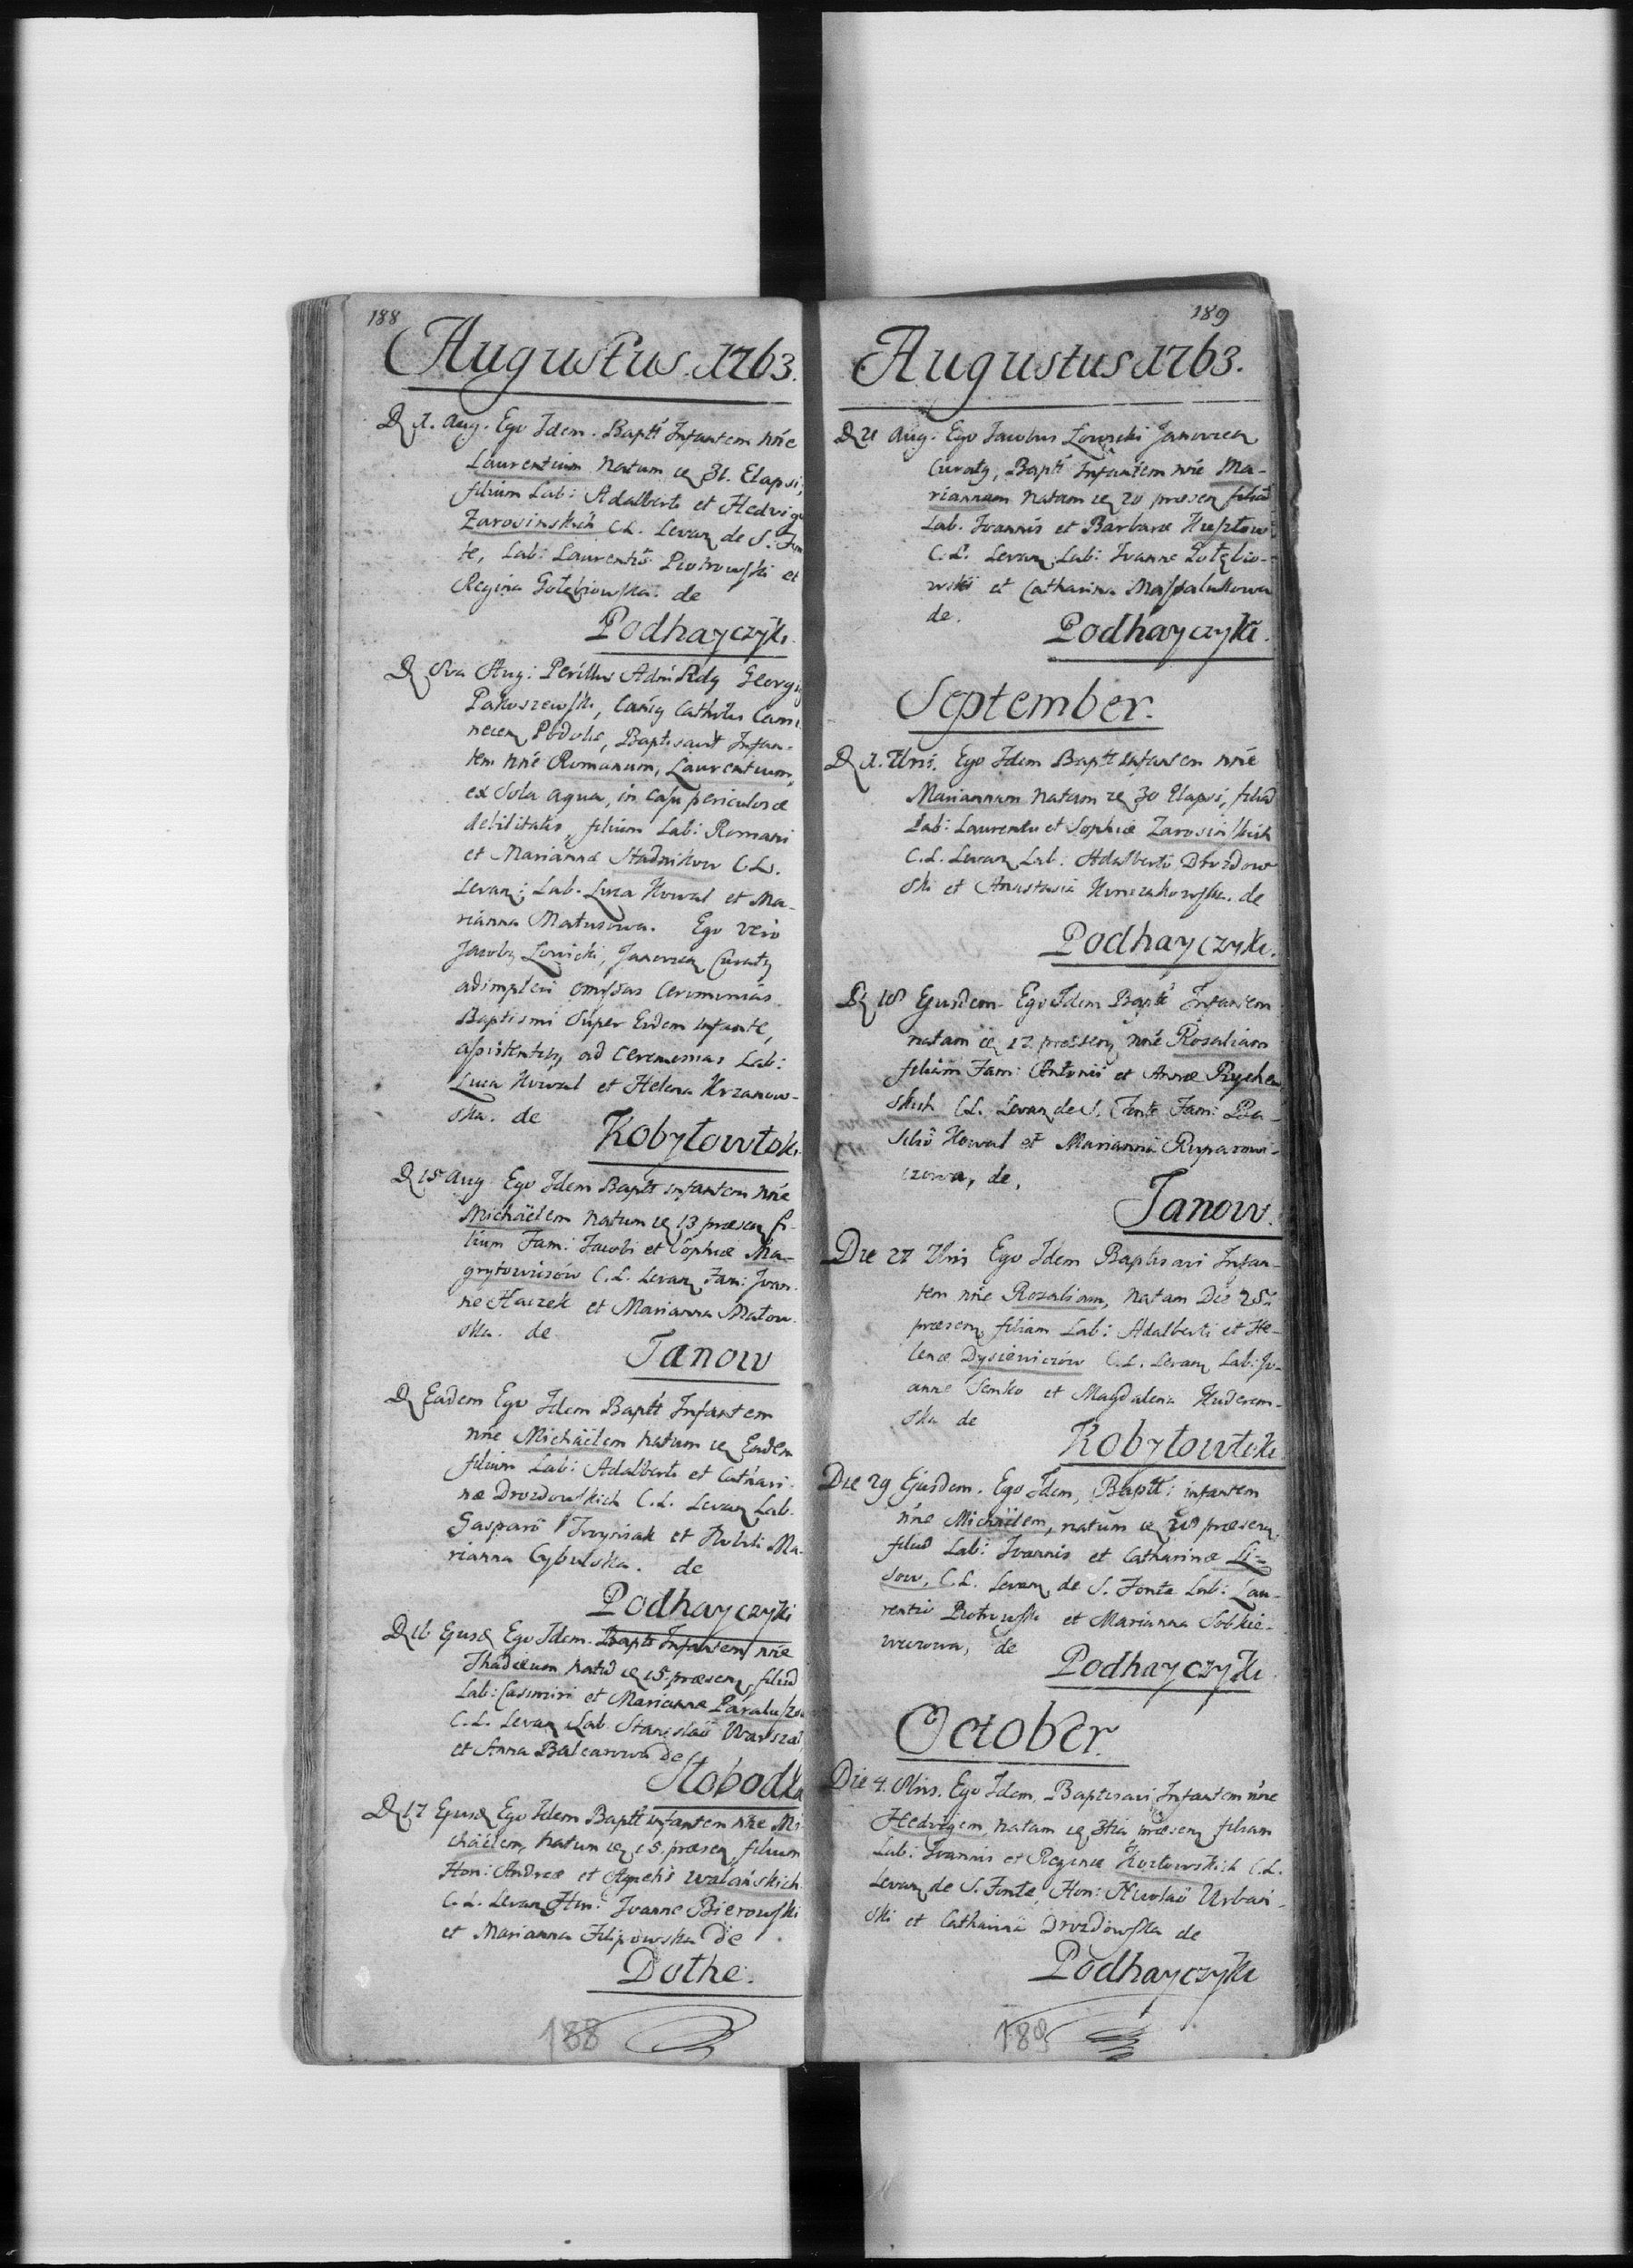 188
Augustus. 1763.
D 1. Aug. Ego Idem. Baptī Infantem nn̄e
Laurentium Natum 31. Elapsi,
filium Lab: Adalberti et Hedvigæ
Zarosinskich C.L. Levan de S. Fon
te, Lab: Laurentiō Piotrowski et
Regina Gołębiowska. de
Podhayczyki.
D 8va Aug: Perillus Adm Rdg Georgig
Pakoszewski, Cathlis Cam
necen Podoliæ, Baptisavit Infan-
tem nn̄e Romanum, Laurentium,
ex Sola aqua, in casu periculosæ
debilitatis, filium Lab: Romani
et Mariannæ Stadnikow C.L.
Levan; Lab. Luca Kowal et Ma-
rianna Matusowa. Ego vero
Jacobg Lowicki, Janovien Curatg
adimplevi omissas Ceremonias
Baptismi Super Eodem infante,
assistentibg ad Ceremonias Lab:
Luca Kowal et Helena Krzanow-
ska. de
Kobyłowłoki.
D 15 Aug Ego Idem Baptī infantem nn̄e
Michäelem Natum 13 præsen fi-
lium Fam: Jacobi et Sophiæ Ma-
grytowiczów C.L. Levan Fam: Joan-
ne Haczek et Marianna Matow-
ska. de
Janow
D Eadem Ego Idem Baptī Infantem
nn̄e Michäelem natum Eadem
filium Lab: Adalberti et Cathari-
næ Drozdowskich C.L. Levan Lab.
Gasparō et Nobili Ma-
rianna Cybulska. de
Podhayczyki
D 16 Ejusd Ego Idem. Baptī Infantem nn̄e
Thadæum natū 15 præsen, filiū
Lab: Casimiri et Mariannæ
C.L. Levan Lab Stanislaō Warszal
et Anna de
Słobodka
D 17 Ejusd Ego Idem Baptī infantem nn̄e Mi
chäelem, natum 15. præsen, filium
Hon: Andreæ et Agnetis Walańskich
C.L. Levan Hon: Joanne Bierowski
et Marianna Filipowska de
Dołhe.
188
189
Augustus 1763.
D 21 Aug. Ego Jacobus Lowicki Janovien
Curatg, Baptī Infantem nn̄e Ma-
riannam Natam 20 præsen filiā
Lab. Joannis et Barbaræ
C.L. Levan Lab: Joanne Gołębio-
wski et Catharina
de.
Podhayczyki.
September.
D 1. 7bris. Ego Idem Baptī infantem nn̄e
Mariannam natam 30 Elapsi, filiā
Lab: Laurentii et Sophiæ Zarosinskich
C.L. Levan Lab: Adalbertō Drozdow
ski et Anastasia de
Podhayczyki.
D 18 Ejusdem Ego Idem Baptī Infantem
natam 17 præsen nn̄e Rosaliam
filiam Fam: Antonii et Annæ
skich C.L. Levan de S. Fonte Fam:
Kowal et Marianna
czowa, de,
Janow.
Die 27 7bris Ego Idem Baptisavi Infan-
tem nn̄e Rozaliam, natam Die 25
præsen filiam Lab: Adalberti et He-
lenæ Dysiewiczów C.L. Levan Lab: Jo-
anne Senko et Magdalena Kuderem-
ska de
Kobyłowłoki
Die 29 Ejusdem. Ego Idem, Baptī: infantem
nn̄e Michäelem, natum 28 præsen
filiū Lab: Joannis et Catharinæ Li-
sow, C.L. Levan de S. Fonte Lab: Lau-
rentiō Piotrowski et Marianna Sobkie-
wiczowa, de
Podhayczyki
October.
Die 4. 8bris. Ego Idem, Baptisavi Infantem nn̄e
Hedvigem natam 3tia præsen filiam
Lab: Joannis et Reginæ Kozłowskich C.L.
Levan de S. Fonte Hon: Nicolaō Urbań-
ski et Catharina Drozdowska de
Podhayczyki
189